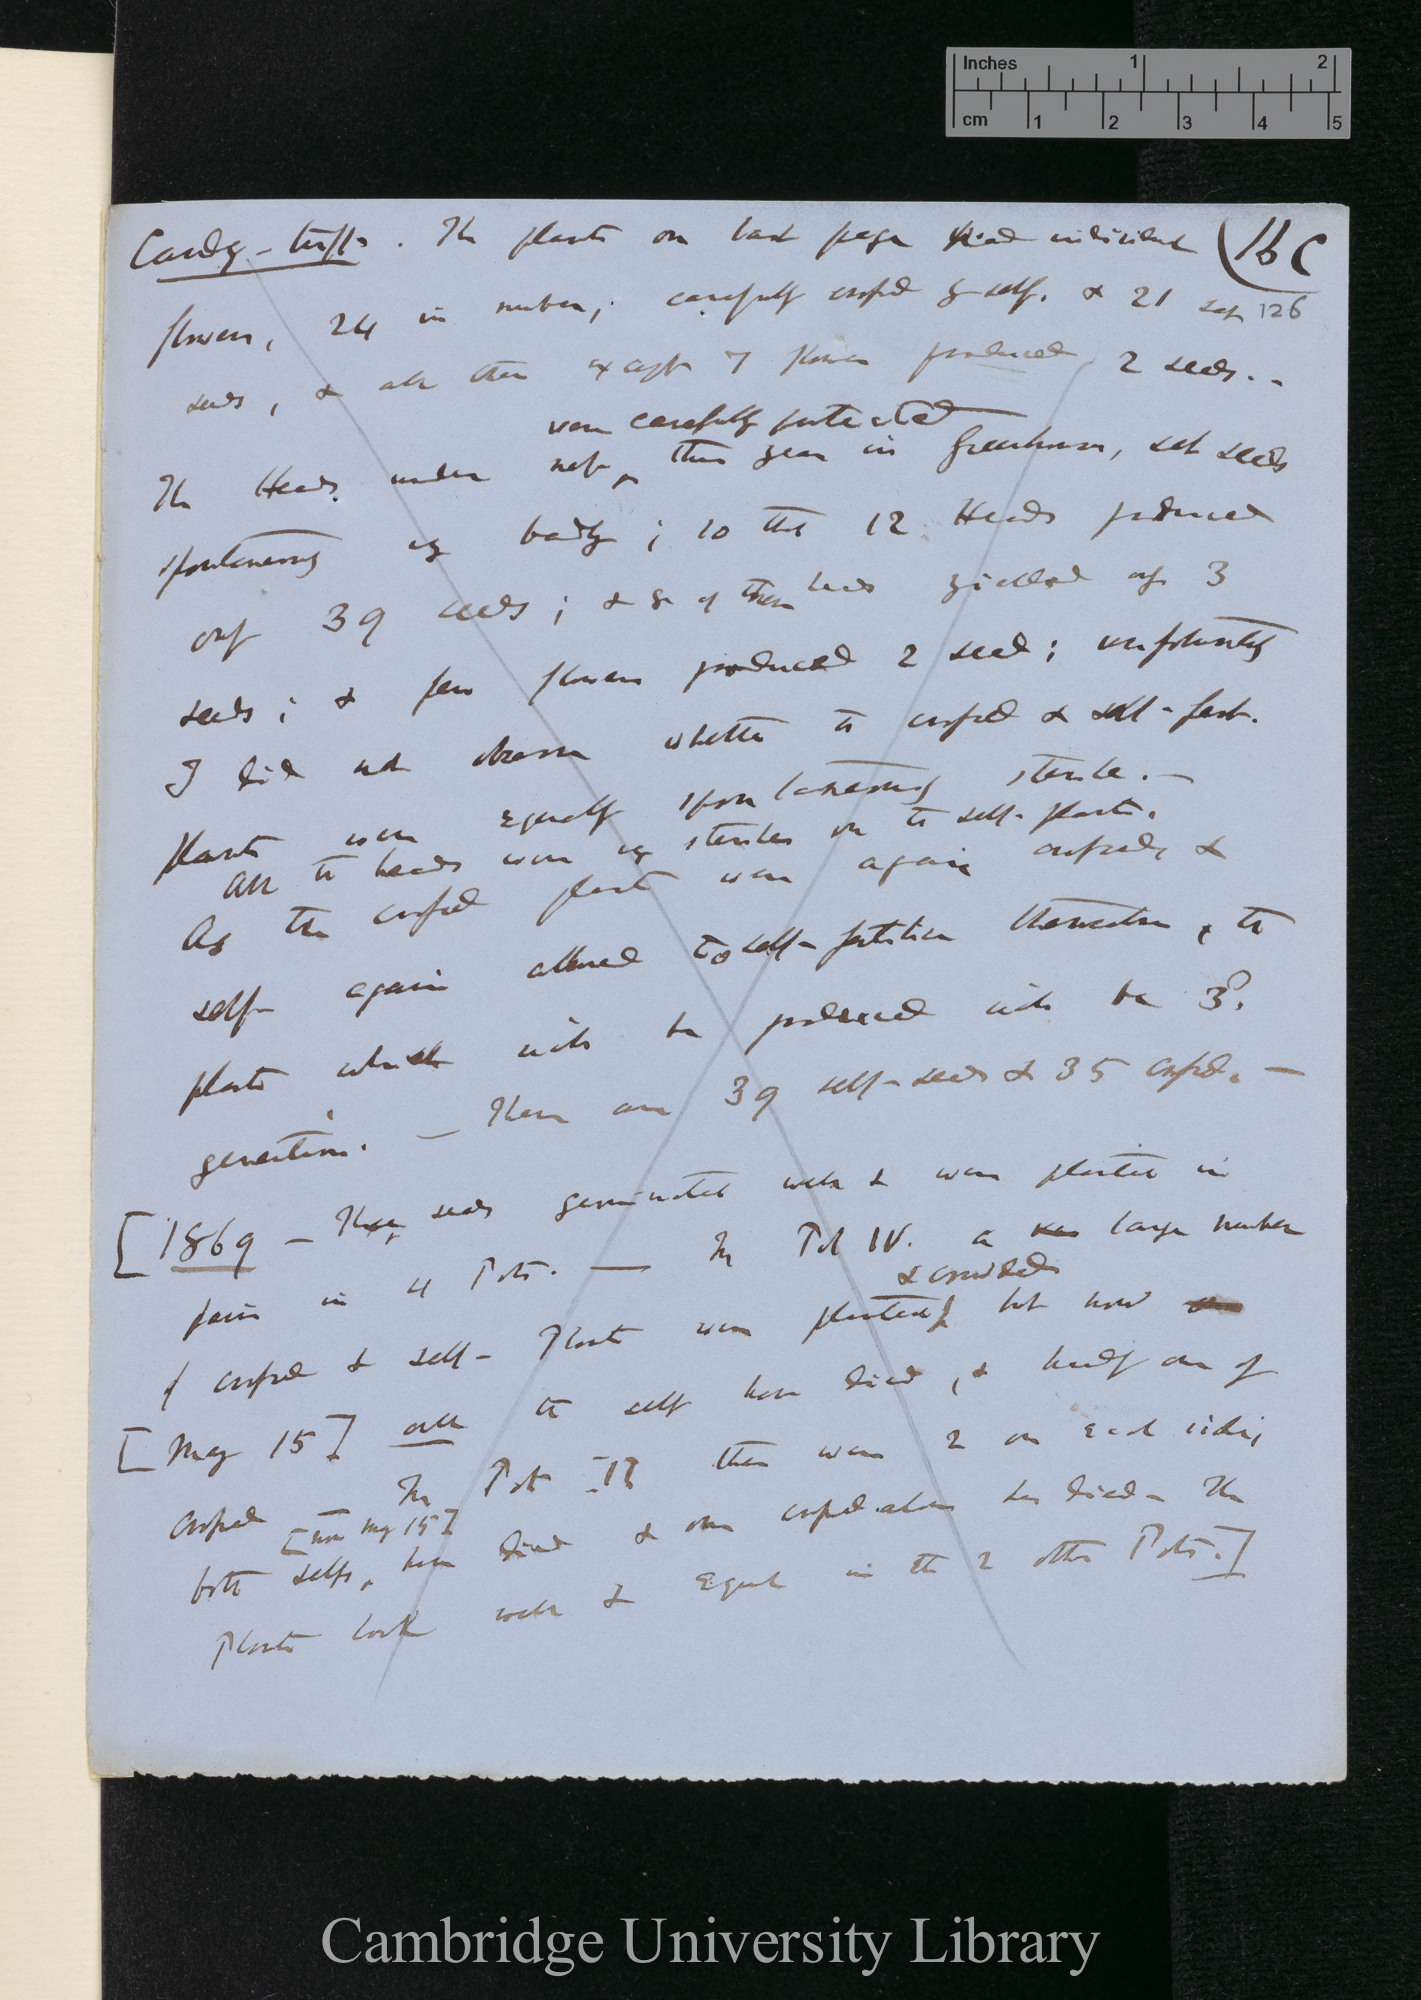 Inches 1 2
cm 1 2 3 4 5
Candy-tufts. The plants on last page had individual (16 C
flowers, 24 in number, carefully crossed & self. & 21 set 126
seeds, & all these except 7 flowers produced 2 seeds..
were carefully protected
The Heads under net, this year in Greenhouse, set seeds
spontaneously very badly; so that 12 Heads produced
only 39 seeds; & 8 of these heads yielded only 3
seeds; & few flowers produced 2 seed; unfortunately
I did not observe whether the crossed & self-fert.
plants were equally spontaneously sterile. —
All the heads were very sterile on the self-plants.
As the crossed plants were again crossed, & the
self- again allowed to self-fertilise themselves, the
plants which will be produced will be 3d.
generation. — There are 39 self-seeds & 35 crossed. —
[1869 — These seeds germinated well & were planted in
pairs in 4 Pots. — In Pot IV. a large number
& crowded
of crossed & self- Plants were planted, but now
[May 15] all the self have died, & hardly one of
crossed In Pot II there were 2 on each side;
[now May 15]
both selfs, have died & one crossed also has died — The
Plants look well & equal in the 2 other Pots.]
Cambridge University Library